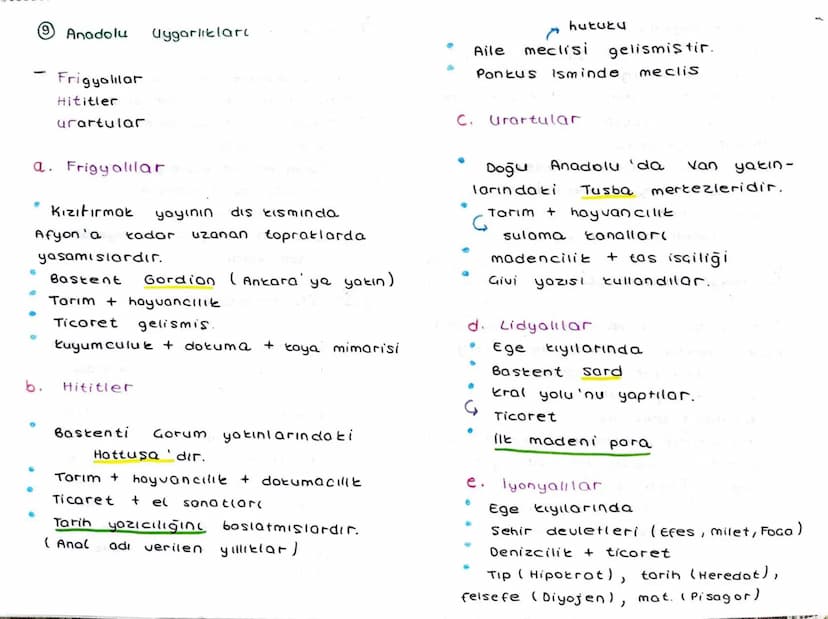 9 Anadolu Uygarlıkları
- Frigyalılar
Hititler
Urartular
a. Frigyalılar
• Kızılırmak yayının dış kısmında
Afyon'a kadar uzanan topraklarda
yaşamışlardır.
• Başkent Gordion (Ankara'ya yakın)
• Tarım + hayvancılık
• Ticaret gelişmiş.
• Kuyumculuk + dokuma + kaya mimarisi
b. Hititler
• Başkenti Çorum yakınlarındaki
Hattuşa'dır.
• Tarım + hayvancılık + dokumacılık
• Ticaret + el sanatları
• Tarih yazıcılığını başlatmışlardır.
(Anal adı verilen yıllıklar)
hukuku
• Aile meclisi gelişmiştir.
• Pankus isminde meclis
c. Urartular
• Doğu Anadolu'da Van yakın-
larındaki Tuşba merkezleridir.
• Tarım + hayvancılık
sulama kanalları
• madencilik + taş işçiliği
• Çivi yazısı kullandılar.
d. Lidyalılar
• Ege kıyılarında
• Başkent Sard
• Kral yolu'nu yaptılar.
Ticaret
• İlk madeni para
e. İyonyalılar
• Ege kıyılarında
• Şehir devletleri (Efes, Milet, Foça)
• Denizcilik + ticaret
• Tıp (Hipokrat), tarih (Heredot),
felsefe (Diyojen), mat. (Pisagor)